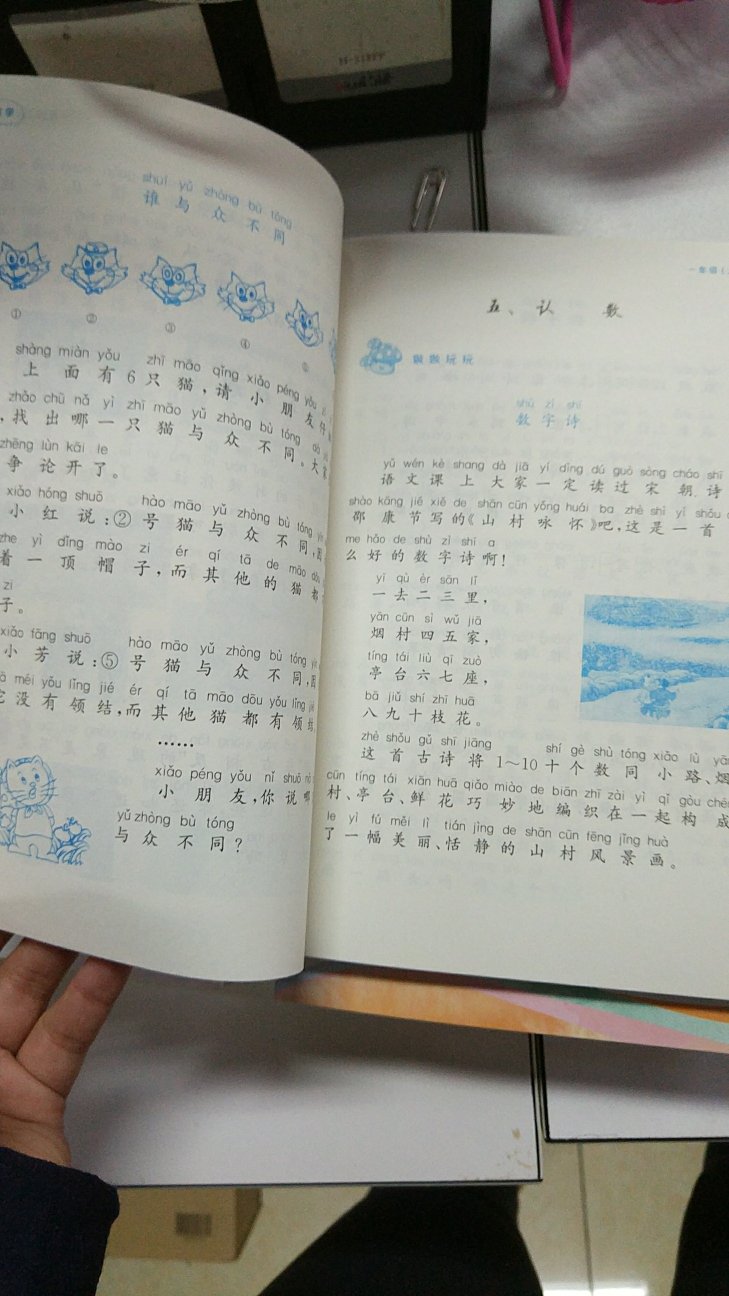 shuí yǔ zhòng bù tóng
谁与众不同
① ② ③ ④
shàng miàn yǒu zhī māo qǐng xiǎo péng yǒu
上面有6只猫,请小朋友
zhǎo chū nǎ yì zhī māo yǔ zhòng bù tóng dà
,找出哪一只猫与众不同。大家
zhēng lùn kāi le
争论开了。
xiǎo hóng shuō hào māo yǔ zhòng bù tóng
小红说:②号猫与众不同,
zhe yì dǐng mào zi ér qí tā de māo dōu
着一顶帽子,而其他的猫都
zi
子。
xiǎo fāng shuō hào māo yǔ zhòng bù tóng
小芳说:⑤号猫与众不同,
méi yǒu lǐng jié ér qí tā māo dōu yǒu lǐng jié
它没有领结,而其他猫都有领结
……
xiǎo péng yǒu nǐ shuō
小朋友,你说
yǔ zhòng bù tóng
与众不同?
一年级(
五、认数
做做玩玩
shù zì shī
数字诗
yǔ wén kè shang dà jiā yí dìng dú guò sòng cháo shī
语文课上大家一定读过宋朝诗
shào kāng jié xiě de shān cūn yǒng huái ba zhè shì yì shǒu
邵康节写的《山村咏怀》吧,这是一首
me hǎo de shù zì shī a
么好的数字诗啊!
yí qù èr sān lǐ
一去二三里,
yān cūn sì wǔ jiā
烟村四五家,
tíng tái liù qī zuò
亭台六七座,
bā jiǔ shí zhī huā
八九十枝花。
zhè shǒu gǔ shī jiāng shí gè shù tóng xiǎo lù yān
这首古诗将1~10十个数同小路、烟
cūn tíng tái xiān huā qiǎo miào de biān zhī zài yì qǐ gòu chéng
村、亭台、鲜花巧妙地编织在一起构成
le yì fú měi lì tián jìng de shān cūn fēng jǐng huà
了一幅美丽、恬静的山村风景画。